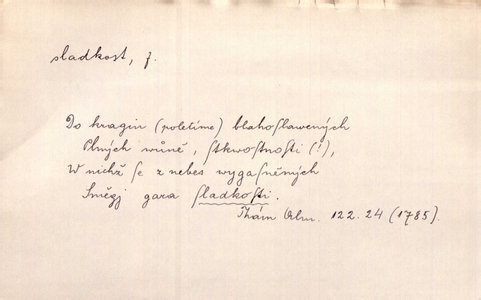 sladkost, f.
Do kragin (poletíme) blahoslawených
Plných wůně, stkwostnosti (!),
W nichž se z nebes wygasněných
Směgj gara sladkosti.
Thám Alm. 122. 24 (1785).